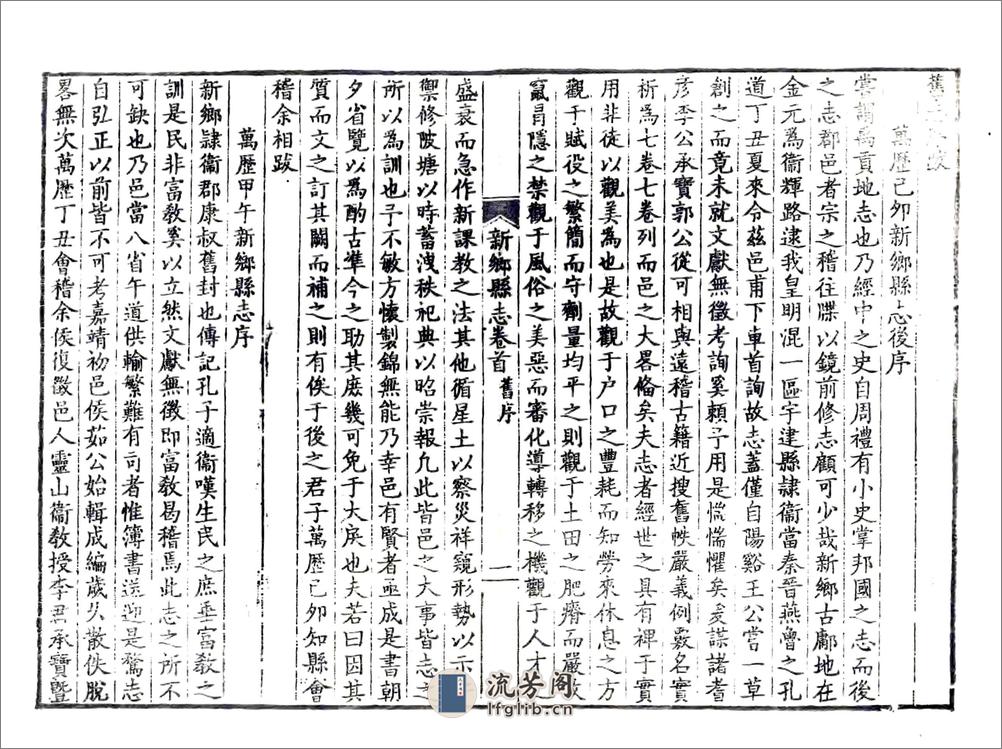 舊
萬歷己夘新鄉縣志後序
嘗謂禹貢地志也乃經中之史自周禮有小史掌邦國之志而後
之志郡邑者宗之稽往牒以鏡前修志顧可少哉新鄉古鄘地在
金元爲衞輝路逮我皇明混一區宇建縣隷衞當秦晉燕魯之孔
道丁丑夏來令兹邑甫下車首詢故志蓋僅自陽谿王公嘗一草
創之而竟未就文獻無徵考詢奚賴予用是慌惴懼矣爰謀諸耆
彦李公承寶郭公從可相與遠稽古籍近搜舊帙嚴義例覈名實
析爲七卷七卷列而邑之大畧偹矣夫志者經世之具有裨于實
用非徒以觀美爲也是故觀于户口之豐耗而知勞來休息之方
觀于賦役之繁簡而守劑量均平之則觀于土田之肥瘠而嚴
竄冐隱之禁觀于風俗之美惡而審化導轉移之機觀于人才
新鄉縣志卷首 舊序 一
盛衰而急作新課教之法其他循星土以察災祥窺形勢以示
禦修陂塘以時蓄洩秩祀典以昭崇報凢此皆邑之大事皆志之
所以爲訓也予不敏方懷製錦無能乃幸邑有賢者亟成是書朝
夕省覽以爲酌古準今之助其庶幾可免于大戾也夫若曰因其
質而文之訂其闕而補之則有俟于後之君子萬歷己夘知縣會
稽余相跋
萬歷甲午新鄉縣志序
新鄉隷衞郡康叔舊封也傳記孔子適衞嘆生民之庶埀富教之
訓是民非富教奚以立然文獻無徵即富教曷稽焉此志之所不
可缺也乃邑當八省午道供輸繁難有司者惟簿書送迎是騖志
自弘正以前皆不可考嘉靖初邑侯茹公始輯成編歲久散佚脫
畧無次萬歷丁丑會稽余侯復徵邑人靈山衞教授李君承寶暨
流芳阁
lfglib.cn